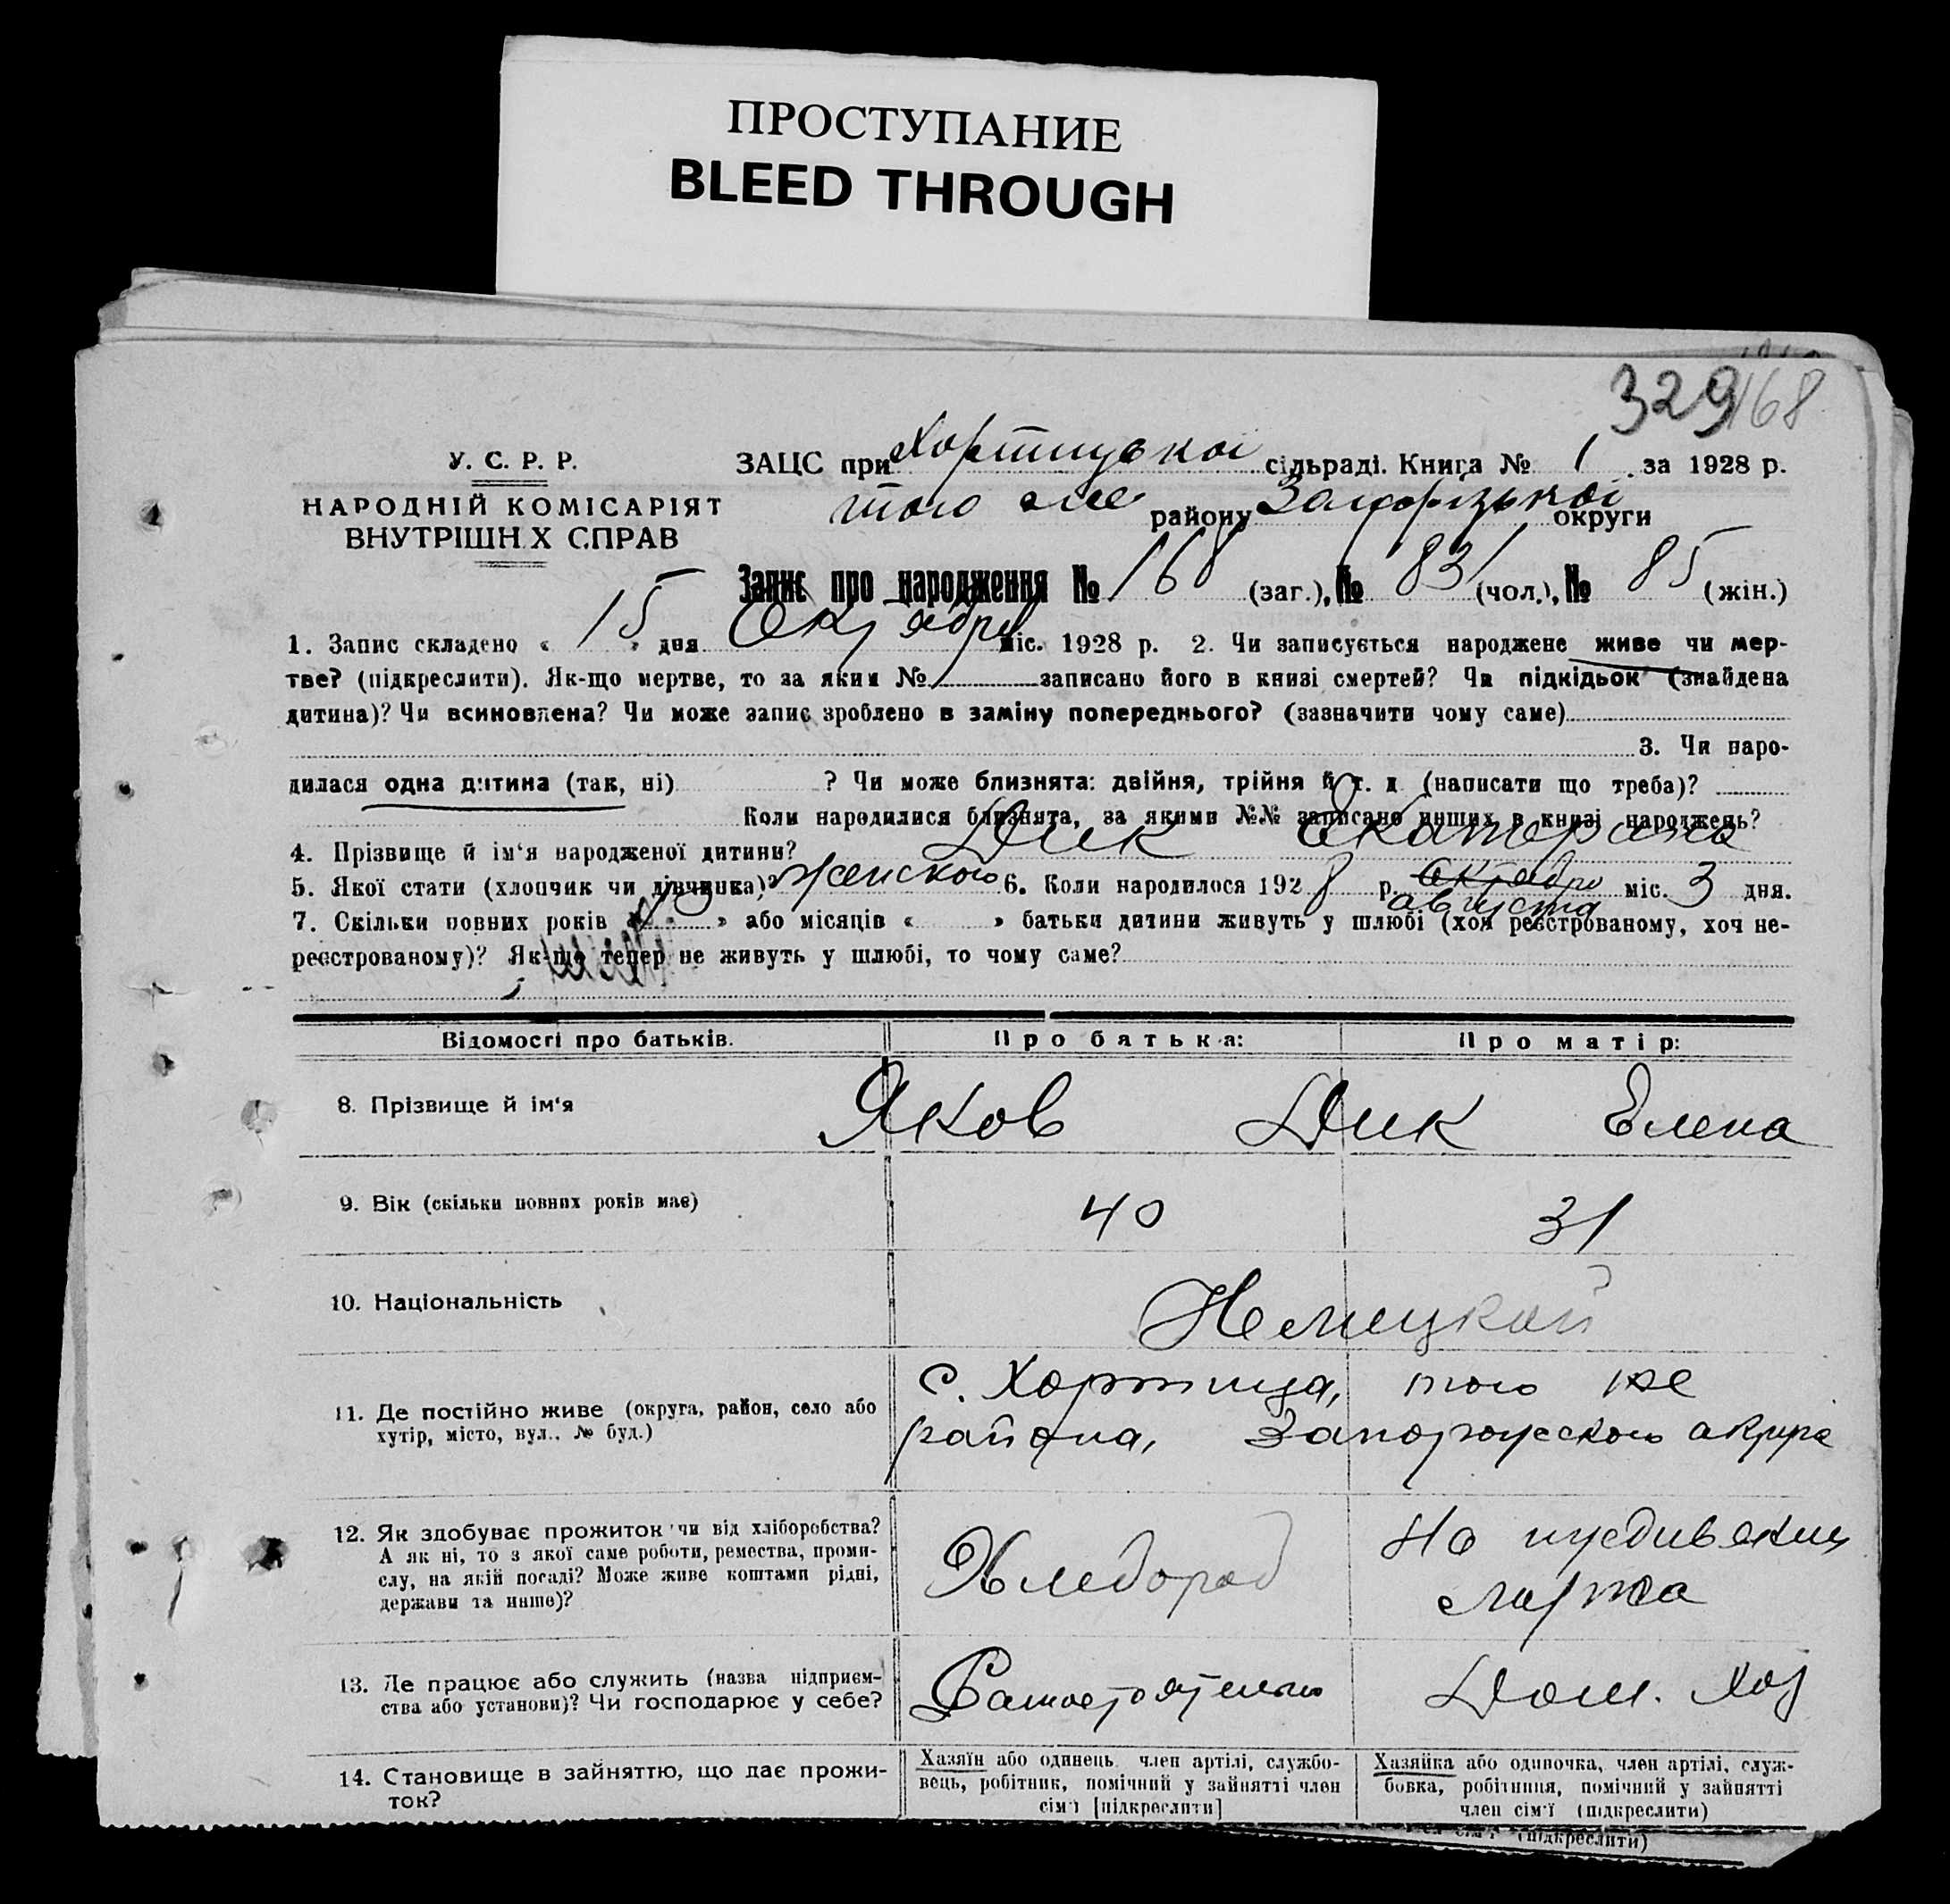 ПРОСТУПАНИЕ
BLEED THROUGH
329 168
У. С. Р. Р.
НАРОДНІЙ КОМІСАРІЯТ
ВНУТРІШН.Х СПРАВ
ЗАЦС при Хортицькой сільраді. Книга № 1 за 1928 р.
того же району Запорізької округи
Запис про народження № 168 (заг.), № 83 (чол.), № 85 (жін.)
1. Запис складено « 15 » дня Октября міс. 1928 р. 2. Чи записується народжене живе чи мер-
тве? (підкреслити). Як-що мертве, то за яким № записано його в книзі смертей? Чи підкідьок (знайдена
дитина)? Чи всиновлена? Чи може запис зроблено в заміну попереднього? (зазначити чому саме)
3. Чи наро-
дилася одна дитина (так, ні) ? Чи може близнята: двійня, трійня й т. д. (написати що треба)?
Коли народилися близнята, за якими №№ записано инших в книзі народжень?
4. Прізвище й ім‘я народженої дитини? Дик Екатерина
5. Якої стати (хлопчик чи дівчинка)? Женского 6. Коли народилося 1928 р. Октября августа міс. 3 дня.
7. Скільки повних років « » або місяців « » батьки дитини живуть у шлюбі (хоч реєстрованому, хоч не-
реєстрованому)? Як-що тепер не живуть у шлюбі, то чому саме?
Відомості про батьків. Про батька: Про матір:
8. Прізвище й ім‘я Яков Дик Елена
9. Вік (скільки повних років має) 40 31
10. Національність Немецкой
11. Де постійно живе (округа, район, село або
хутір, місто, вул., № буд.)
с. Хортица, того же
района, Запорожского округа
12. Як здобуває прожиток чи від хліборобства?
А як ні, то з якої саме роботи, ремества, проми-
слу, на якій посаді? Може живе коштами рідні,
держави та инше)?
Хлебороб
На иждивении
мужа
13. Де працює або служить (назва підприєм-
ства або установи)? Чи господарює у себе?
Самостоятельно Дом. хоз
14. Становище в зайняттю, що дає прожи-
ток?
Хазяїн або одинець член артілі, службо-
вець, робітник, помічний у зайнятті член
сім‘ї [підкреслити]
Хазяйка або одиночка, член артілі, служ-
бовка, робітниця, помічний у зайнятті
член сім‘ї (підкреслити)
(підкреслити)